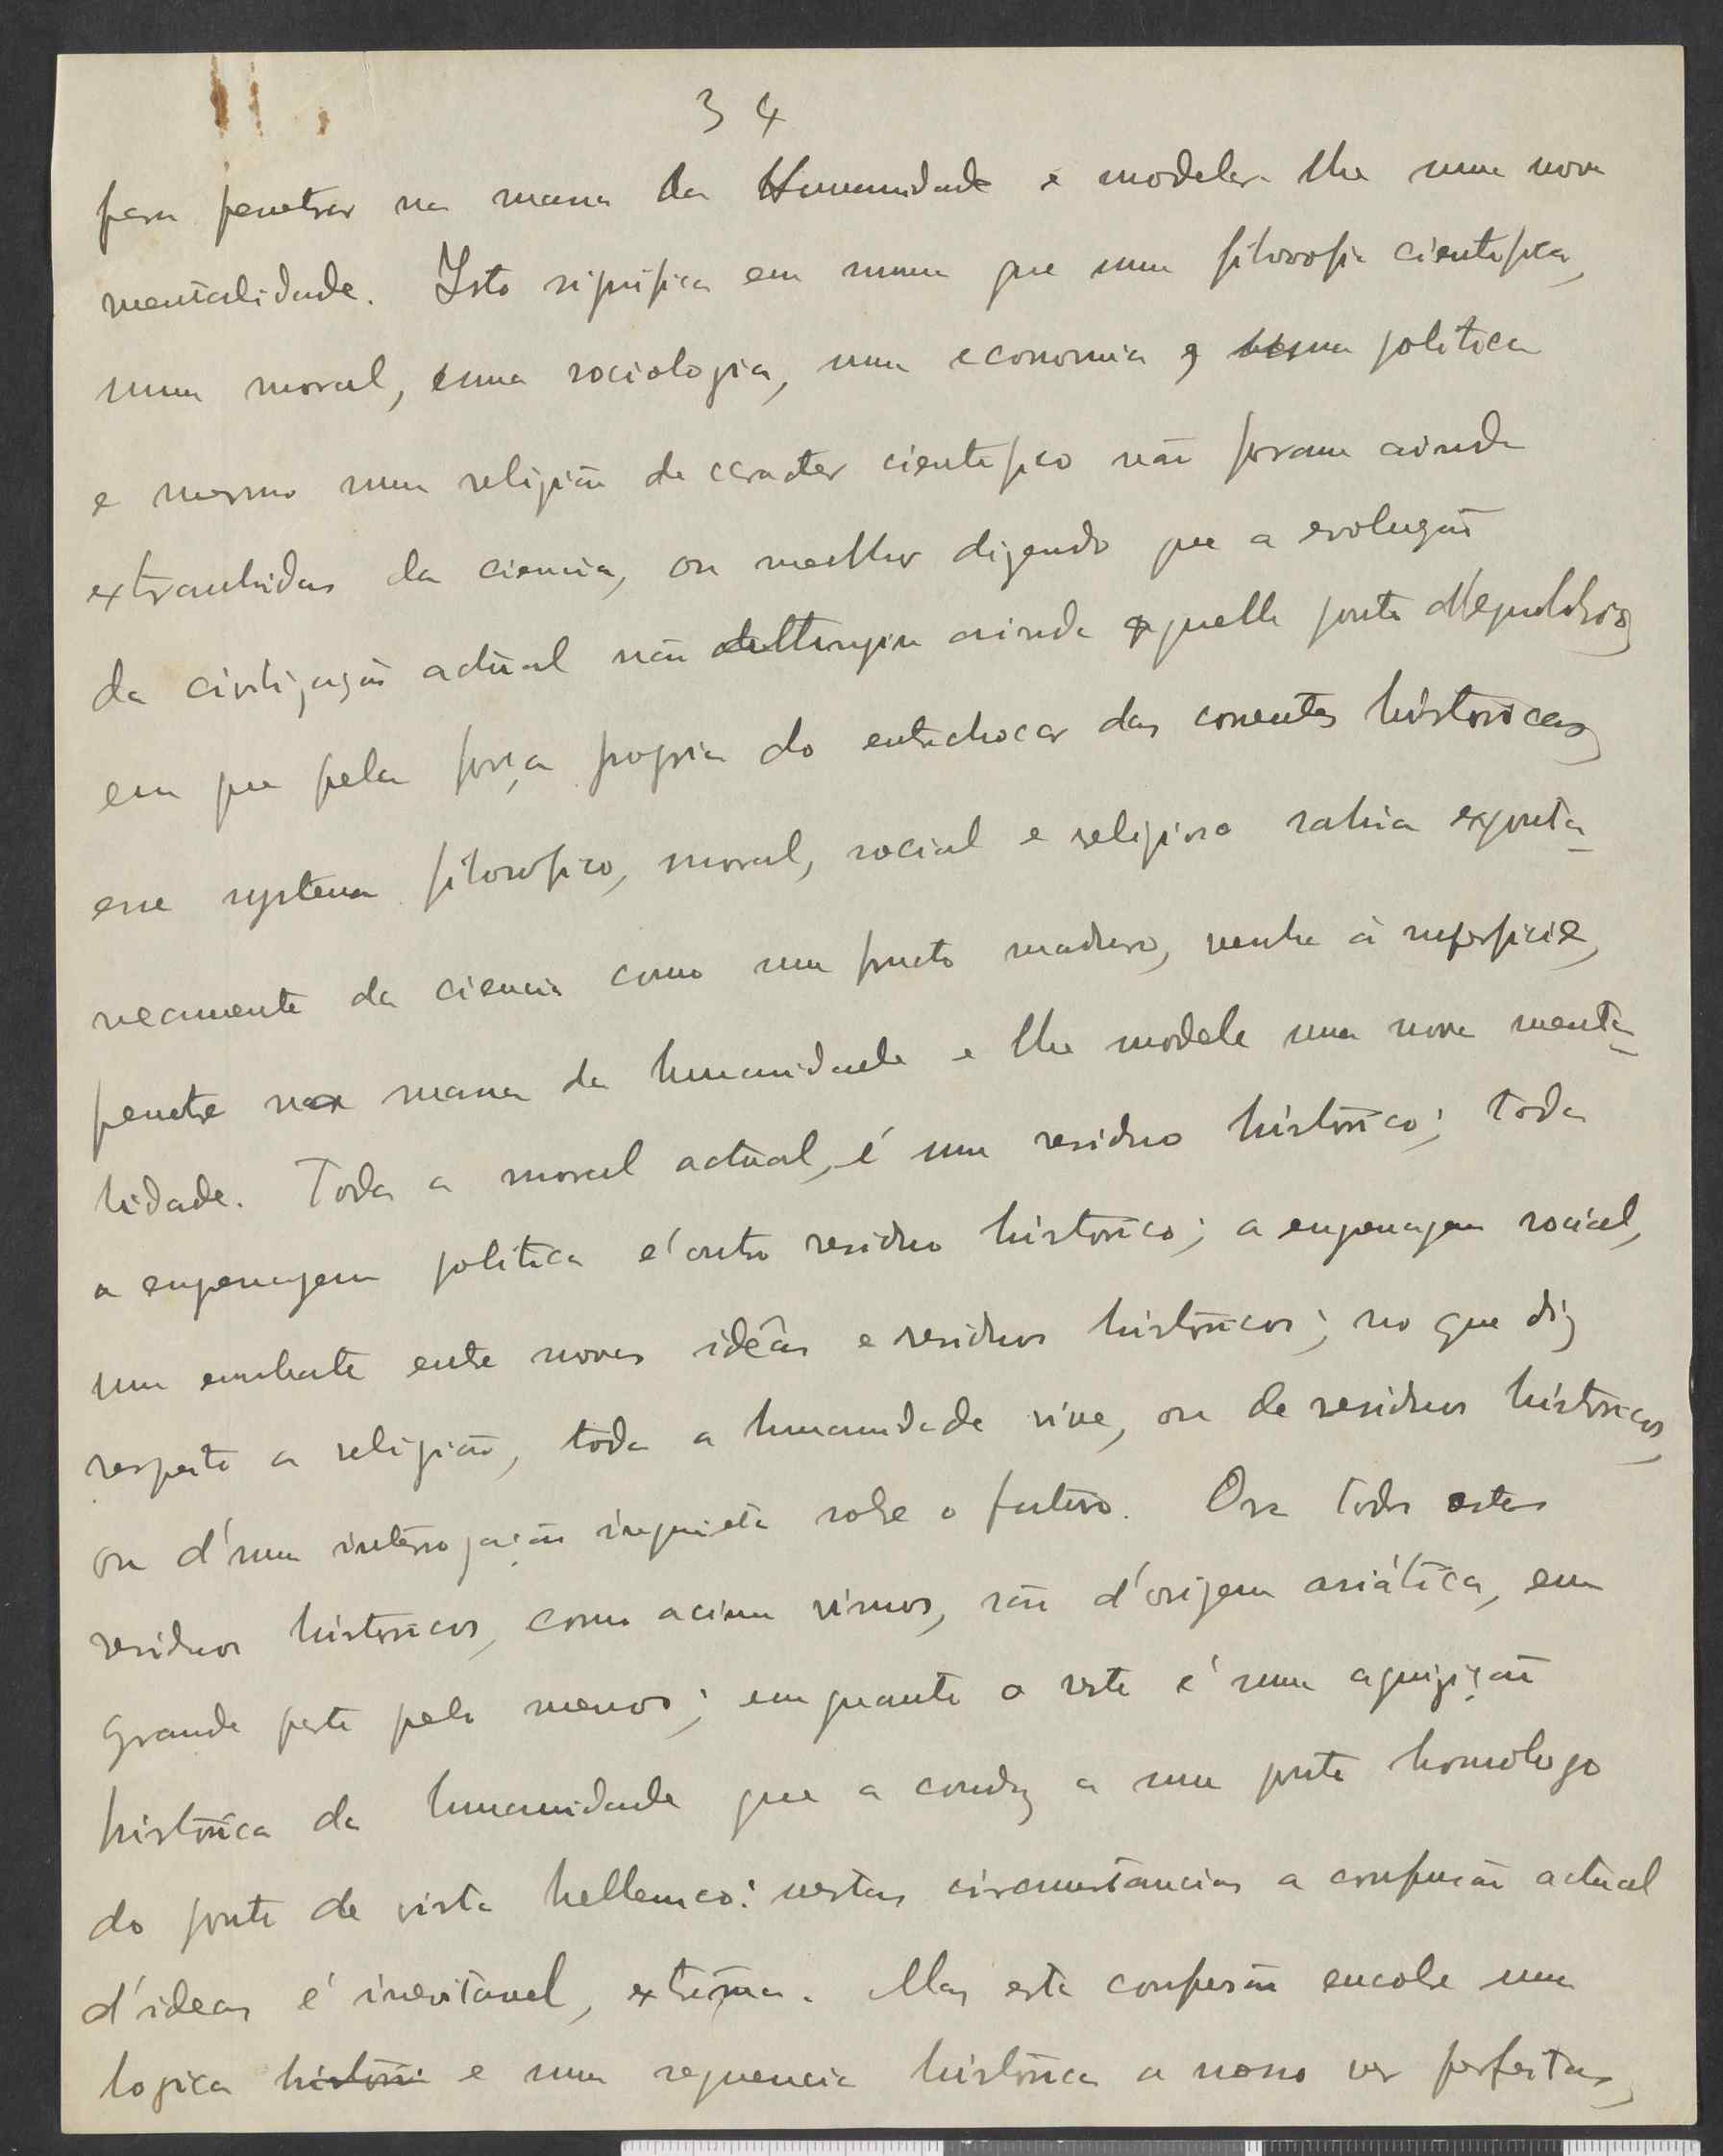 34
para penetrar na massa da Humanidade e modelar-lhe uma nova
mentalidade. Isto significa em summa que uma filosofia cientifica,
uma moral, uma sociologia, uma economia, uma politica
e mesmo uma religião de caracter cientifico não foram ainda
extrauhidas da ciencia, ou melhor dizendo que a evolução
da civilização actual não attingiu ainda aquelle ponto d'equilibrio,
em que pela força propria do entrechocar das correntes históricas,
esse systema filosofico, moral, social e religioso sahia exponta-
neamente da ciencia como um fructo maduro, venha á superficie,
penetre na massa da humanidade e lhe modele uma nova menta-
lidade. Toda a moral actual, é um residuo histórico; toda
a engenagem politica é outro residuo histórico; a engenagem social,
um embate entre novas idêas e residuos históricos; no que diz
respeito a religião, toda a humanidade vive, ou de residuos históricos,
ou d'uma interrogação inquieta sobre o futuro. Ora todos estes
residuos históricos, como acima vimos, são d'origem asiática, em
grande parte pelo menos; emquanto o resto é uma aquizição
histórica da humanidade que a conduz a um ponto homólogo
do ponto de vista hellenico: nestas circumstancias a confusão actual
d'ideas é inevitavel, extrema. Mas esta confusão encobre uma
logica históri e uma sequencia histórica a nosso ver perfeitas,